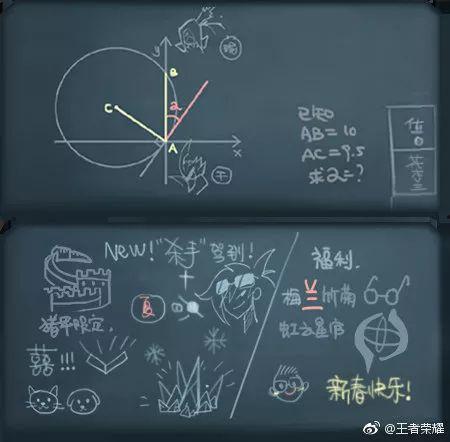 y
B
C
2
A
x
已知
AB=10
AC=9.5
求2=?
值日
New! "杀手"驾到!
+
夏
猪年限定.
囍!!!
福利.
梅兰竹菊
虹云星官
新春快乐!
@王者荣耀